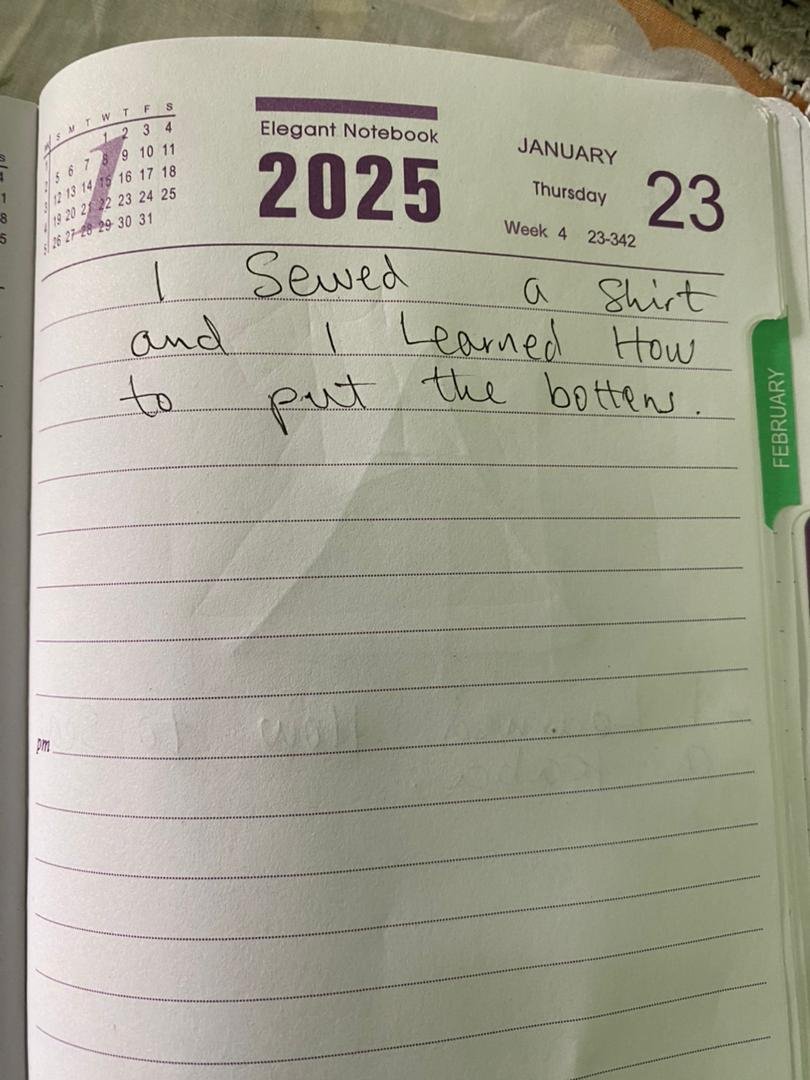 S M T W T F S
1 1 2 3 4
2 5 6 7 8 9 10 11
3 12 13 14 15 16 17 18
4 19 20 21 22 23 24 25
5 26 27 28 29 30 31
1
Elegant Notebook
2025
JANUARY
Thursday
23
Week 4 23-342
I Sewed a Shirt
and I Learned How
to put the bottens.
FEBRUARY
pm